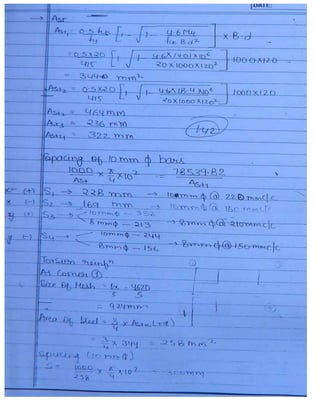 DATE:
→ Ast
Ast₁ = 0.5 fck / fy [1 - √1 - 4.6 Mu / fck B d²] × B·d
= 0.5×20 / 415 [1 - √1 - 4.6×14.01×10⁶ / 20×1000×120²] 1000×120
= 344.0 mm²
Ast₂ = 0.5×20 / 415 [1 - √1 - 4.6×18.4×10⁶ / 20×1000×120²] 1000×120
Ast₂ = 464 mm
Ast₃ = 236 mm
Ast₄ = 322 mm
142
Spacing of 10mm ϕ bars
1000 / Ast × π/4 × 10² = 78539.82 / Ast₁
x (+) S₁ → 228 mm → 10mmϕ @ 220mmc/c
x (-) S₂ → 169 mm → 10mmϕ @ 160mmc/c
y (+) S₃ → 10mmϕ - 332
8mmϕ - 213 → 8mmϕ @ 210mmc/c
y (-) S₄ → 10mmϕ - 244
8mmϕ - 156 → 8mmϕ @ 150mmc/c
Torsion reinfⁿ
At Corner ①
Size of Mesh = lx / 5 = 4620 / 5
= 924mm
Area of Steel = 3/4 × Ast₁ (x+)
= 3/4 × 344 = 258 mm²
Spacing (10mmϕ)
S = 1000 / 258 × π/4 × 10² = 300mm